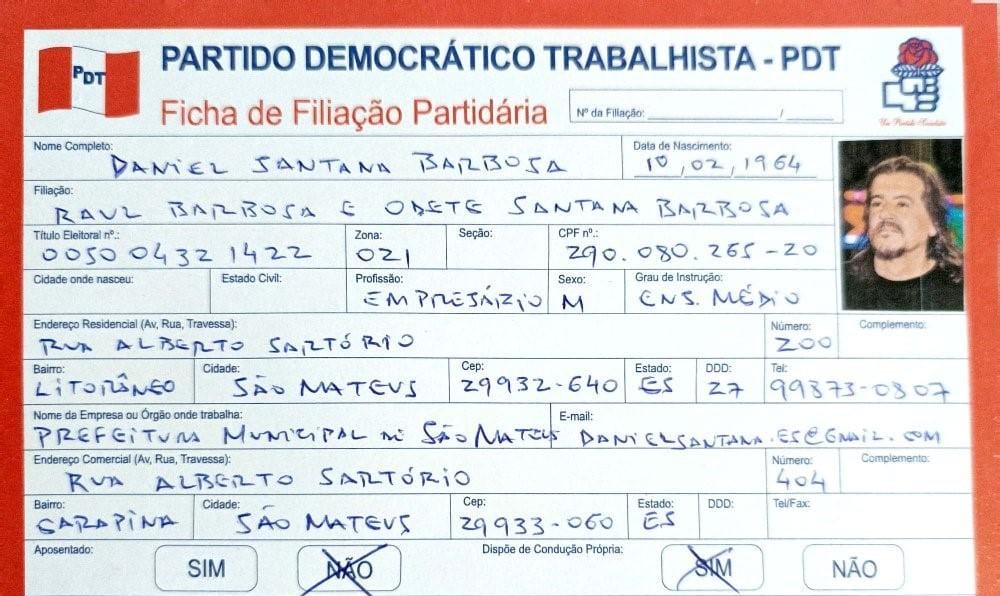 PDT
PARTIDO DEMOCRÁTICO TRABALHISTA - PDT
Ficha de Filiação Partidária
Nº da Filiação: ____________ / ______
Nome Completo: DANIEL SANTANA BARBOSA
Data de Nascimento: 10, 02, 1964
Filiação: RAUL BARBOSA E ODETE SANTANA BARBOSA
Título Eleitoral nº.: 0050 0432 1422 Zona: 021 Seção: CPF nº.: 290.080.265-20
Cidade onde nasceu: Estado Civil: Profissão: EMPRESÁRIO Sexo: M Grau de Instrução: ENS. MÉDIO
Endereço Residencial (Av, Rua, Travessa): RUA ALBERTO SARTÓRIO Número: 200 Complemento:
Bairro: LITORÂNEO Cidade: SÃO MATEUS Cep: 29932-640 Estado: ES DDD: 27 Tel: 99873-0807
Nome da Empresa ou Órgão onde trabalha: PREFEITURA MUNICIPAL DE SÃO MATEUS E-mail: DANIELSANTANA.ES@GMAIL.COM
Endereço Comercial (Av, Rua, Travessa): RUA ALBERTO SARTÓRIO Número: 404 Complemento:
Bairro: CARAPINA Cidade: SÃO MATEUS Cep: 29933-060 Estado: ES DDD: Tel/Fax:
Aposentado: SIM NÃO Dispõe de Condução Própria: SIM NÃO